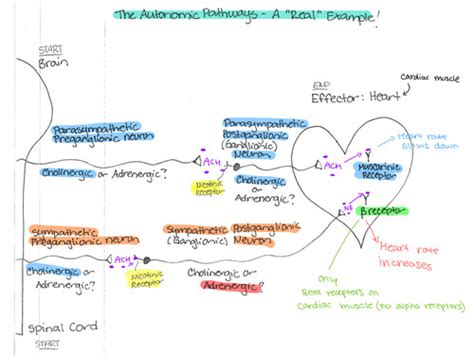 The Autonomic Pathways - A "Real" Example!
START
Brain
END
Effector: Heart
Cardiac muscle
Parasympathetic
Preganglionic neuron
Parasympathetic
Postganglionic
(Ganglionic)
Neuron
ACH
ACH
Heart rate
slows down
Muscarinic
Receptor
Cholinergic or Adrenergic?
Nicotinic
Receptor
Cholinergic or
Adrenergic?
NE
B receptor
Sympathetic
Preganglionic neuron
Sympathetic Postganglionic
(Ganglionic) Neuron
ACH
Heart rate
increases
Cholinergic or
Adrenergic?
Nicotinic
Receptor
Cholinergic or
Adrenergic?
only
Beta receptors on
Cardiac muscle (no alpha receptors)
Spinal Cord
START